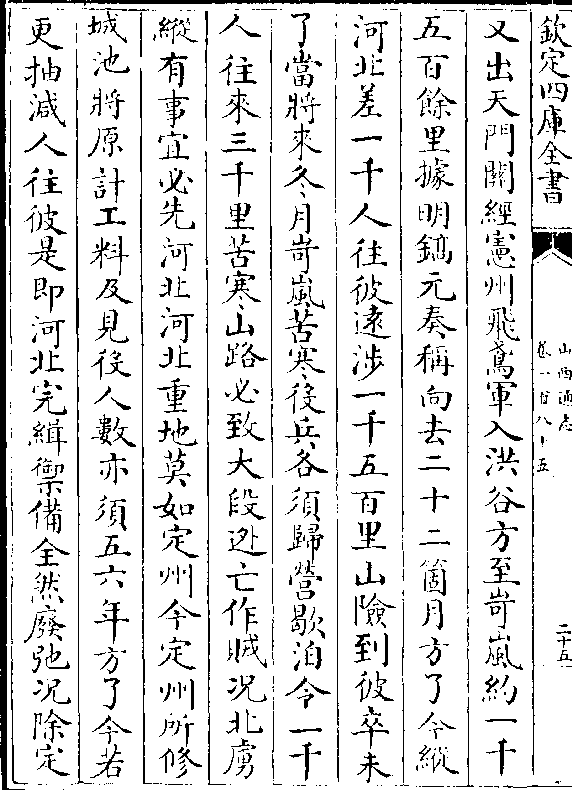 欽定四庫全書
山西通志
卷一百八十五
二十五
又出天門關經憲州飛鳶軍入洪谷方至岢嵐約一千
五百餘里據明鎬元奏稱向去二十二箇月方了今縱
河北差一千人往彼遠涉一千五百里山險到彼卒未
了當將來冬月岢嵐苦寒後兵各須歸營歇泊令一千
人往來三千里苦寒山路必致大段迯亡作賊况北虜
縱有事宜必先河北河北重地莫如定州今定州所修
城池將原計工料及見役人數亦須五六年方了今若
更抽減人往彼是即河北完緝禦備全然廢弛况除定